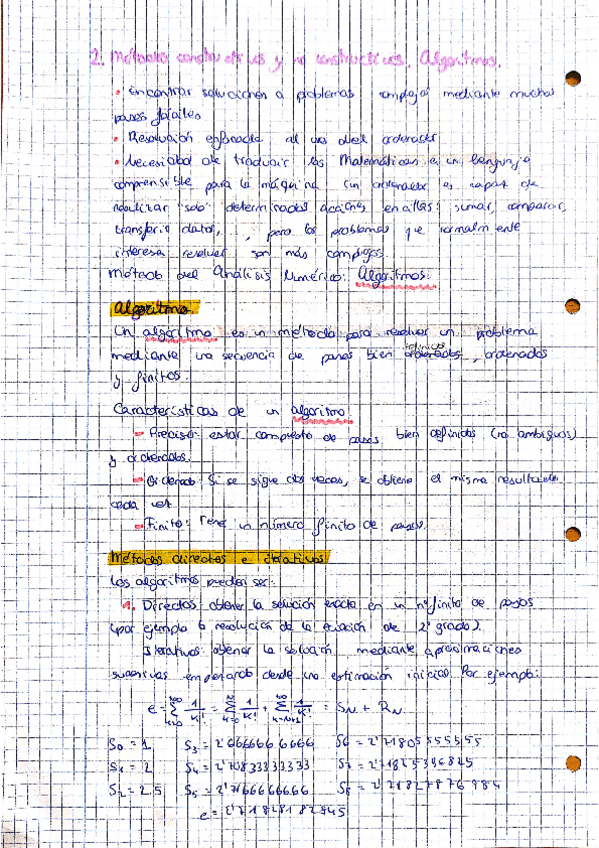 2. Métodos constructivos y no constructivos. Algoritmos.
• Encontrar soluciones a problemas complejos mediante muchos
pasos fáciles
• Resolución enfocada al uso del ordenador
• Necesidad de traducir las Matemáticas a un lenguaje
comprensible para la máquina (un ordenador es capaz de
realizar "solo" determinadas acciones sencillas: sumar, comparar,
transferir datos, , pero los problemas que normalmente
interesa resolver son más complejos.
Método del Análisis Numérico: Algoritmos.
Algoritmo
Un algoritmo es un método para resolver un problema
mediante una secuencia de pasos bien definidos, ordenados
y finitos.
Características de un algoritmo:
- Preciso: estar compuesto de pasos bien definidos (no ambiguos)
y ordenados.
- Ordenado: Si se sigue dos veces, se obtiene el mismo resultado
cada vez
- Finito: Tiene un número finito de pasos.
Métodos directos e iterativos
Los algoritmos pueden ser:
1. Directos: obtener la solución exacta en un nº finito de pasos
(por ejemplo la resolución de la ecuación de 2º grado).
Iterativos: obtener la solución mediante aproximaciones
sucesivas empezando desde una estimación inicial. Por ejemplo:
e = ∑_{k=0}^{+∞} 1/k! = ∑_{k=0}^{N} 1/k! + ∑_{k=N+1}^{+∞} 1/k! = S_N + R_N
S0 = 1 S3 = 2'6666666666 S6 = 2'71805555555
S1 = 2 S4 = 2'70833333333 S7 = 2'71825396825
S2 = 2.5 S5 = 2'71666666666 S8 = 2'71827876984
e = 2'71828182845